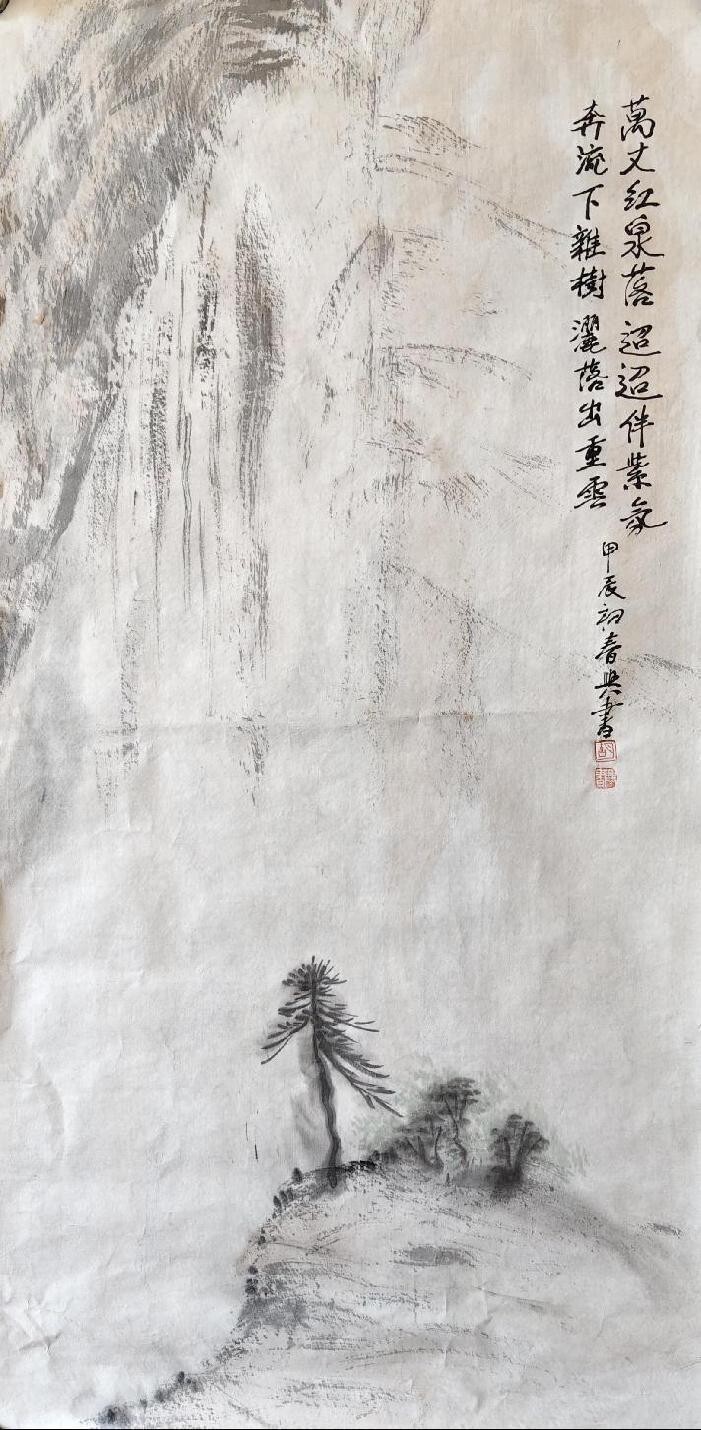 萬丈紅泉落迢迢伴紫氛
奔流下雜樹灑落出重雲
甲辰初春興書